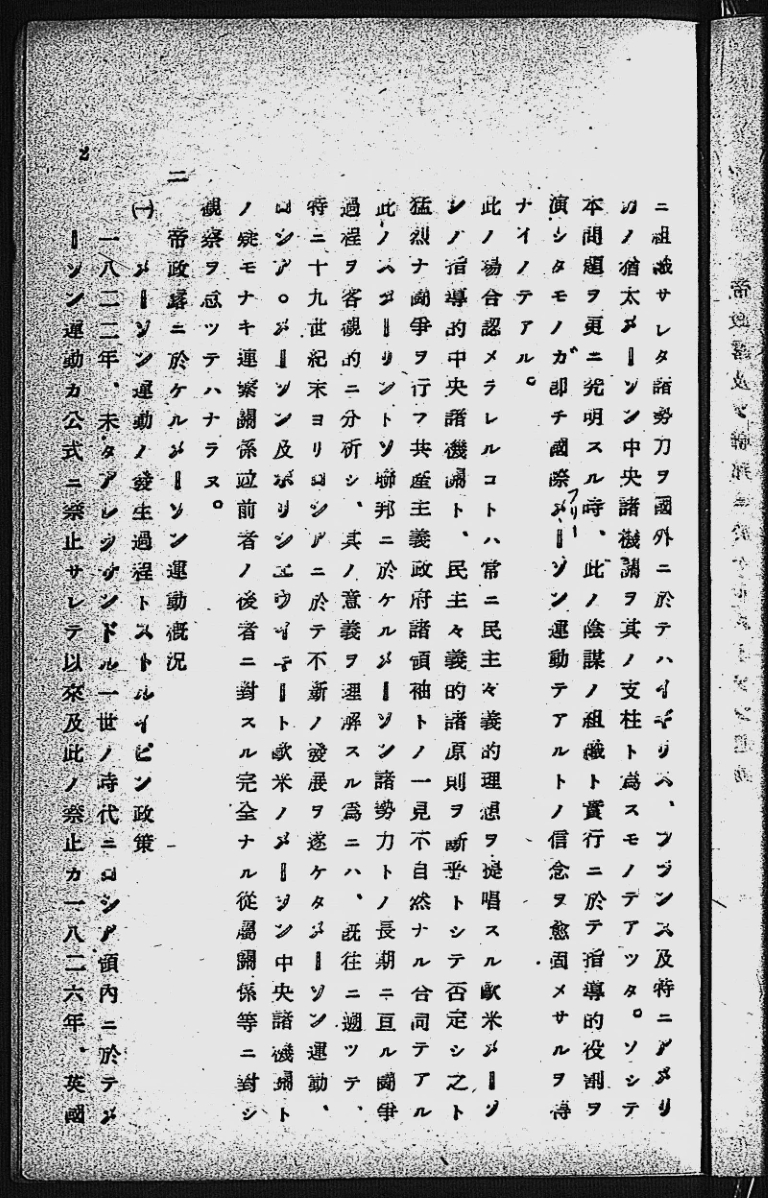 ニ組織サレタ諸勢力ヲ國外ニ於テハイギリス、フランス及特ニアメリ
カノ猶太メーソン中央諸機關ヲ其ノ支柱ト爲スモノテアツタ。ソシテ
本問題ヲ更ニ究明スル時、此ノ陰謀ノ組織ト實行ニ於テ指導的役割ヲ
演シタモノガ即チ國際フリーメーソン運動テアルトノ信念ヲ愈固メサルヲ得
ナイノテアル。
此ノ場合認メラレルコトハ常ニ民主々義的理想ヲ提唱スル歐米メーソ
ンノ指導的中央諸機關ト、民主々義的諸原則ヲ斷乎トシテ否定シ之ト
猛烈ナ鬪爭ヲ行フ共産主義政府諸領袖トノ一見不自然ナル合同テアル
此ノヘゲーリントソ聯邦ニ於ケルメーソン諸勢力トノ長期ニ亘ル鬪爭
過程ヲ客觀的ニ分析シ、其ノ意義ヲ理解スル爲ニハ、既往ニ遡ツテ、
特ニ十九世紀末ヨリロシアニ於テ不斷ノ發展ヲ遂ケタメーソン運動、
ロシア。メーソン及ボリシエヴイキート歐米ノメーソン中央諸機關ト
ノ疑モナキ連繋關係竝前者ノ後者ニ對スル完全ナル從屬關係等ニ對シ
觀察ヲ怠ツテハナラヌ。
二 帝政露ニ於ケルメーソン運動概況
㈠ メーソン運動ノ發生過程トストルイピン政策
一八二二年、未タアレクサンドル一世ノ時代ニロシア領内ニ於テメ
ーソン運動カ公式ニ禁止サレテ以來及此ノ禁止カ一八二六年、英國
2